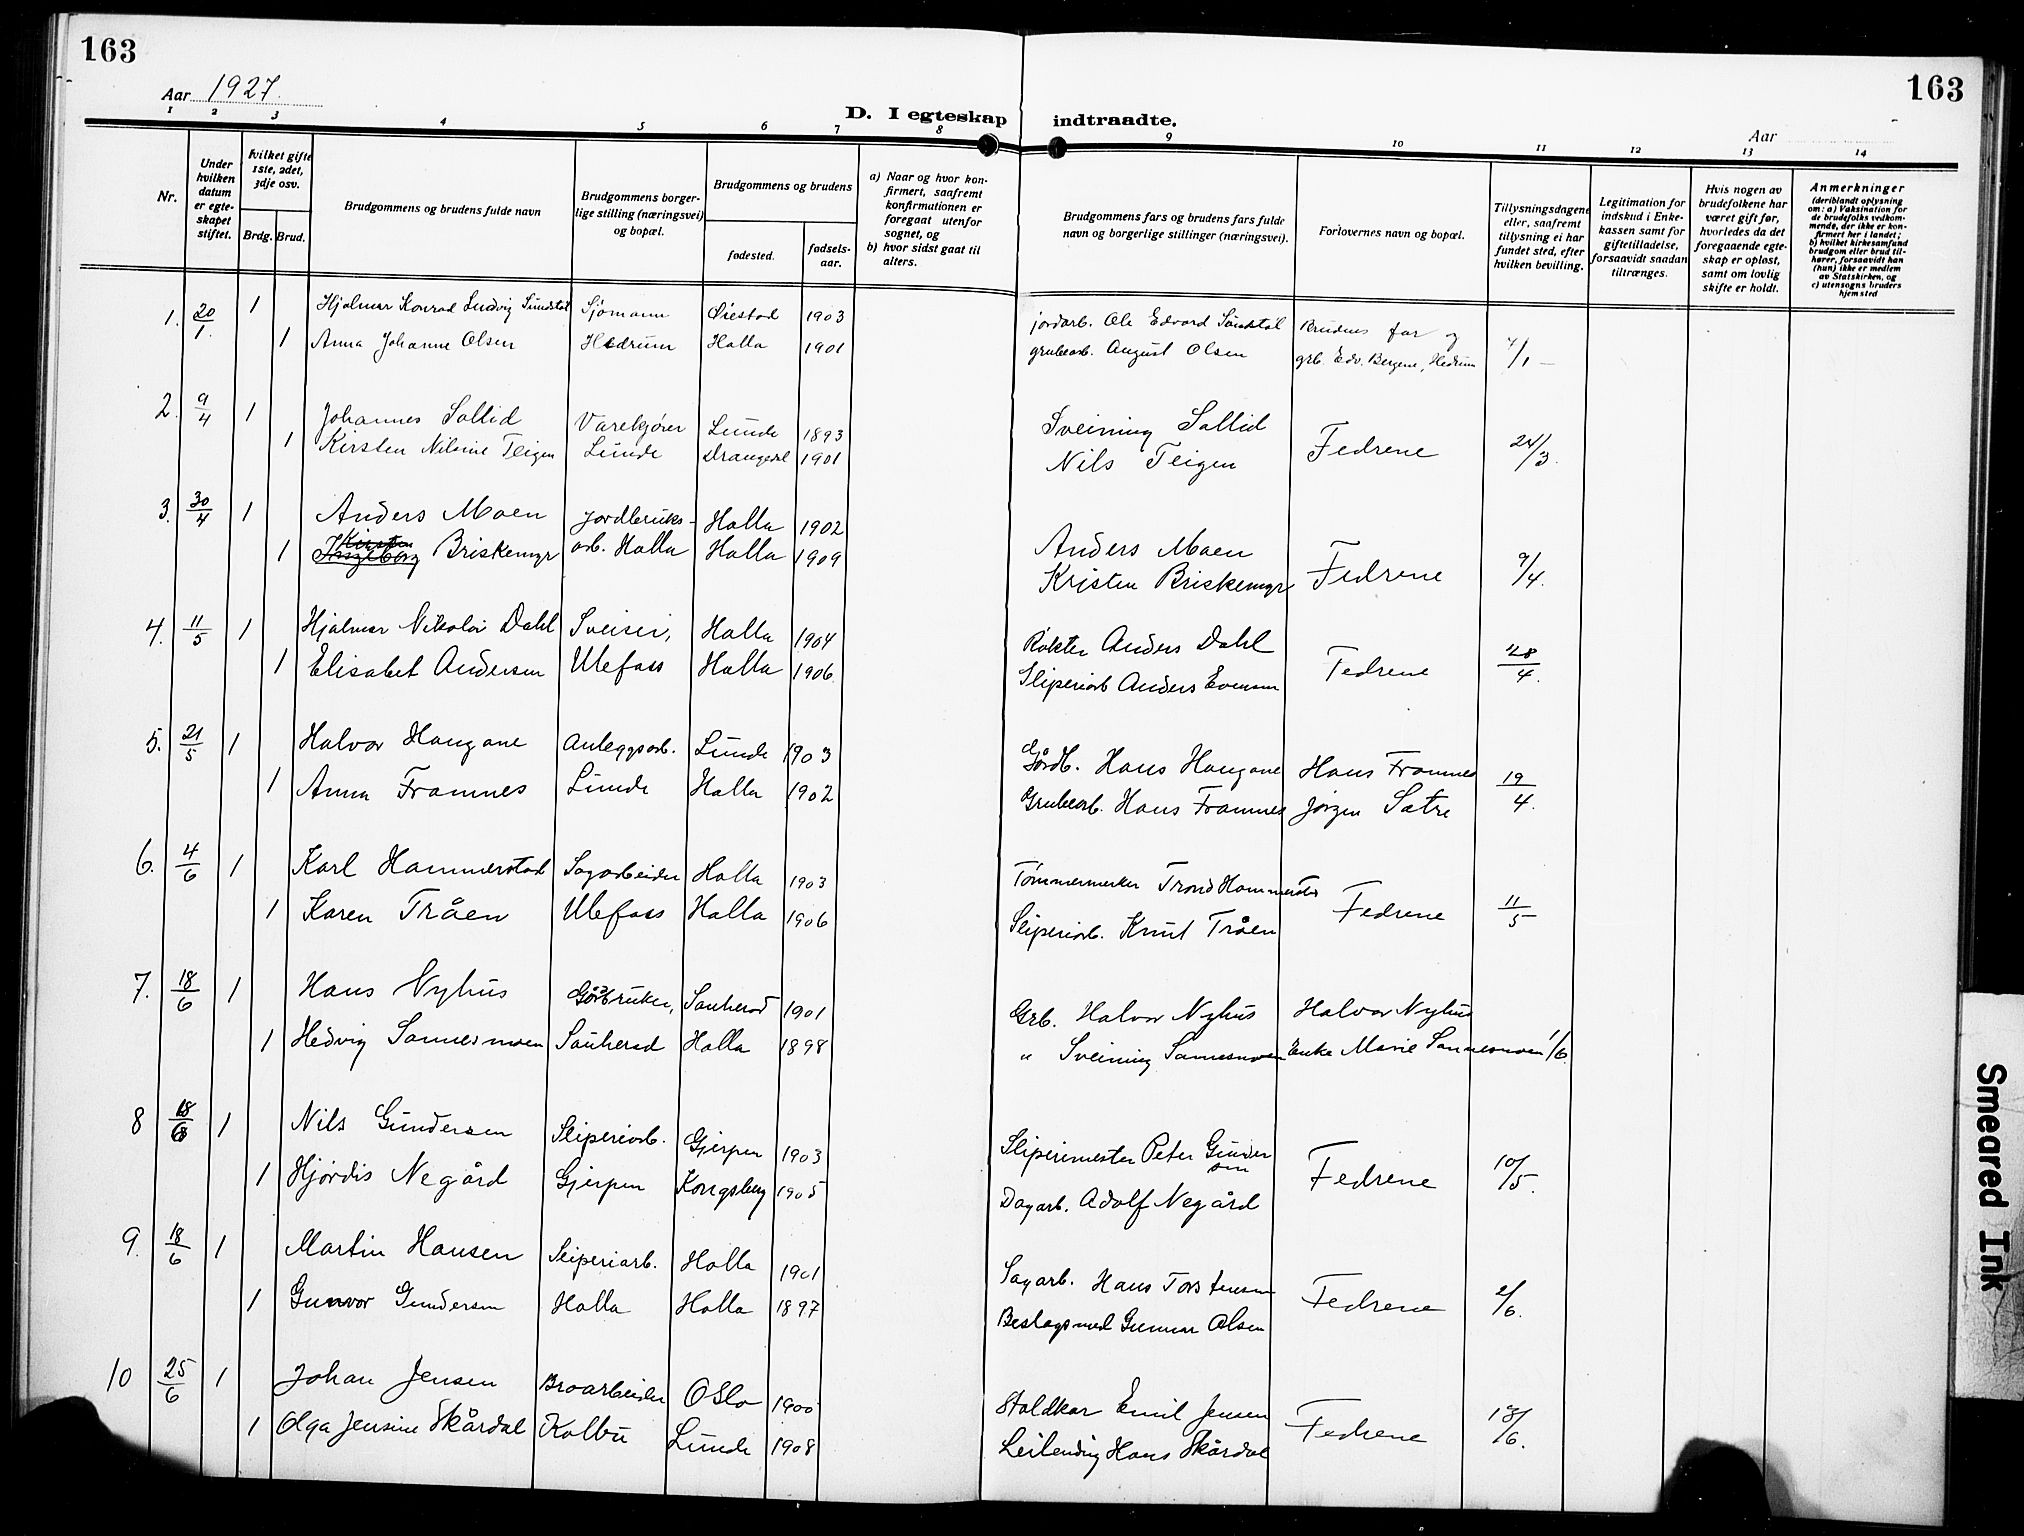 163
163
Aar 1927.
D. I egteskap indtraadte.
Aar
1 2 3 4 5 6 7 8 9 10 11 12 13 14
Nr.
Under hvilken datum er egteskapet stiftet.
hvilket gifte 1ste, 2det, 3dje osv.
Brdg. Brud.
Brudgommens og brudens fulde navn
Brudgommens borgerlige stilling (næringsvei) og bopæl.
Brudgommens og brudens
fødested.
fødselsaar.
a) Naar og hvor konfirmert, saafremt konfirmationen er foregaat utenfor sognet, og
b) hvor sidst gaat til alters.
Brudgommens fars og brudens fars fulde navn og borgerlige stillinger (næringsvei).
Forlovernes navn og bopæl.
Tillysningsdagene eller, saafremt tillysning ei har fundet sted, efter hvilken bevilling.
Legitimation for indskud i Enkekassen samt for giftetilladelse, forsaavidt saadan tiltrænges.
Hvis nogen av brudefolkene har været gift før, hvorledes da det foregaaende egteskap er opløst, samt om lovlig skifte er holdt.
Anmerkninger
(deriblandt oplysning om: a) Vaksination for de brudefolks vedkommende, der ikke er konfirmert her i landet; b) hvilket kirkesamfund brudgom eller brud tilhører, forsaavidt han (hun) ikke er medlem av Statskirken, og c) utensogns bruders hjemsted
1. 20/1. 1 Hjalmar Konrad Ludvig Sundstøl Sjømann Øiestad 1903 jordarb. Ole Edvard Sundstøl Brudens far og
1 Anna Johanne Olsen Hedrum Holla 1901 grubearb. August Olsen grb. Edv. Bergene, Hedrum 7/1 –
2. 9/4 1 Johannes Sollid Varekjører Lunde 1893 Sveinung Sollid Fedrene 24/3.
1 Kirsten Nilsine Teigen Lunde Drangedal 1901 Nils Teigen
3. 30/4 1 Anders Moen Jordbruks- Holla 1902 Anders Moen Fedrene 9/4.
1 Kirsten Ingeborg Briskemyr arb. Holla Holla 1909 Kristen Briskemyr
4. 11/5 1 Hjalmar Nikolai Dahl Sveiser, Holla 1904 Røkter Anders Dahl Fedrene 28/4.
1 Elisabet Andersen Ulefoss Holla 1906. Sliperiarb Anders Evensen
5. 21/5 1 Halvor Haugane Anleggsarb. Lunde 1903 Gårdb. Hans Haugane Hans Framnes 19/4.
1 Anna Framnes Lunde Holla 1902 Grubearb. Hans Framnes Jørgen Sætre
6. 4/6 1 Karl Hammerstad Sagarbeider Holla 1903 Tømmermerker Trond Hammerstad Fedrene 11/5
1 Karen Tråen Ulefoss Holla 1906 Sliperiarb. Knut Tråen
7. 18/6 1 Hans Nyhus Gårdbruker, Sauherad 1901 Grb. Halvor Nyhus Halvor Nyhus
1 Hedvig Sannesmoen Sauherad Holla 1898 " Sveinung Sannesmoen Enke Marie Sannesmoen 1/6.
8 18/6 1 Nils Gundersen Sliperiarb. Gjerpen 1903 Sliperimester Peter Gundersen Fedrene 10/5.
1 Hjørdis Negård Gjerpen Kongsberg 1905 Dagarb. Adolf Negård
9. 18/6 1 Martin Hansen Sliperiarb. Holla 1901 Sagarb. Hans Torstensen Fedrene 2/6.
1 Gunvor Gundersen Holla Holla 1897 Beslagsmed Gunnar Olsen
10 25/6 1 Johan Jensen Broarbeider Oslo 1900 Staldkar Emil Jensen Fedrene 13/6.
1 Olga Jensine Skårdal Kolbu Lunde 1908 Leilending Hans Skårdal
Smeared Ink